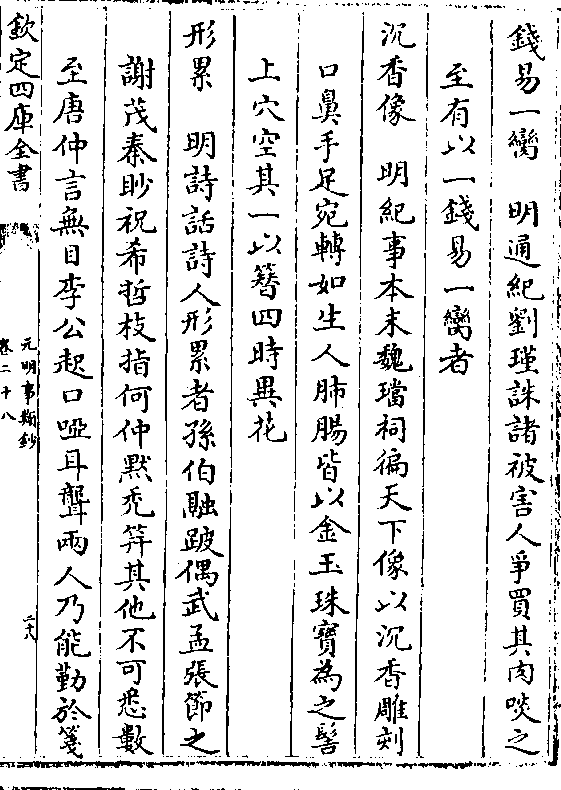 錢易一臠　明通紀劉瑾誅諸被害人爭買其肉啖之
至有以一錢易一臠者
沉香像　明紀事本末魏璫祠徧天下像以沉香雕刻
口鼻手足宛轉如生人肺腸皆以金玉珠寶為之髻
上穴空其一以簪四時異花
形累　明詩話詩人形累者孫伯融跛偶武孟張節之
謝茂秦眇祝希哲枝指何仲默禿筓其他不可悉數
至唐仲言無目李公起口啞耳聾兩人乃能勤於箋
欽定四庫全書
元明事類鈔
卷二十八
二十八